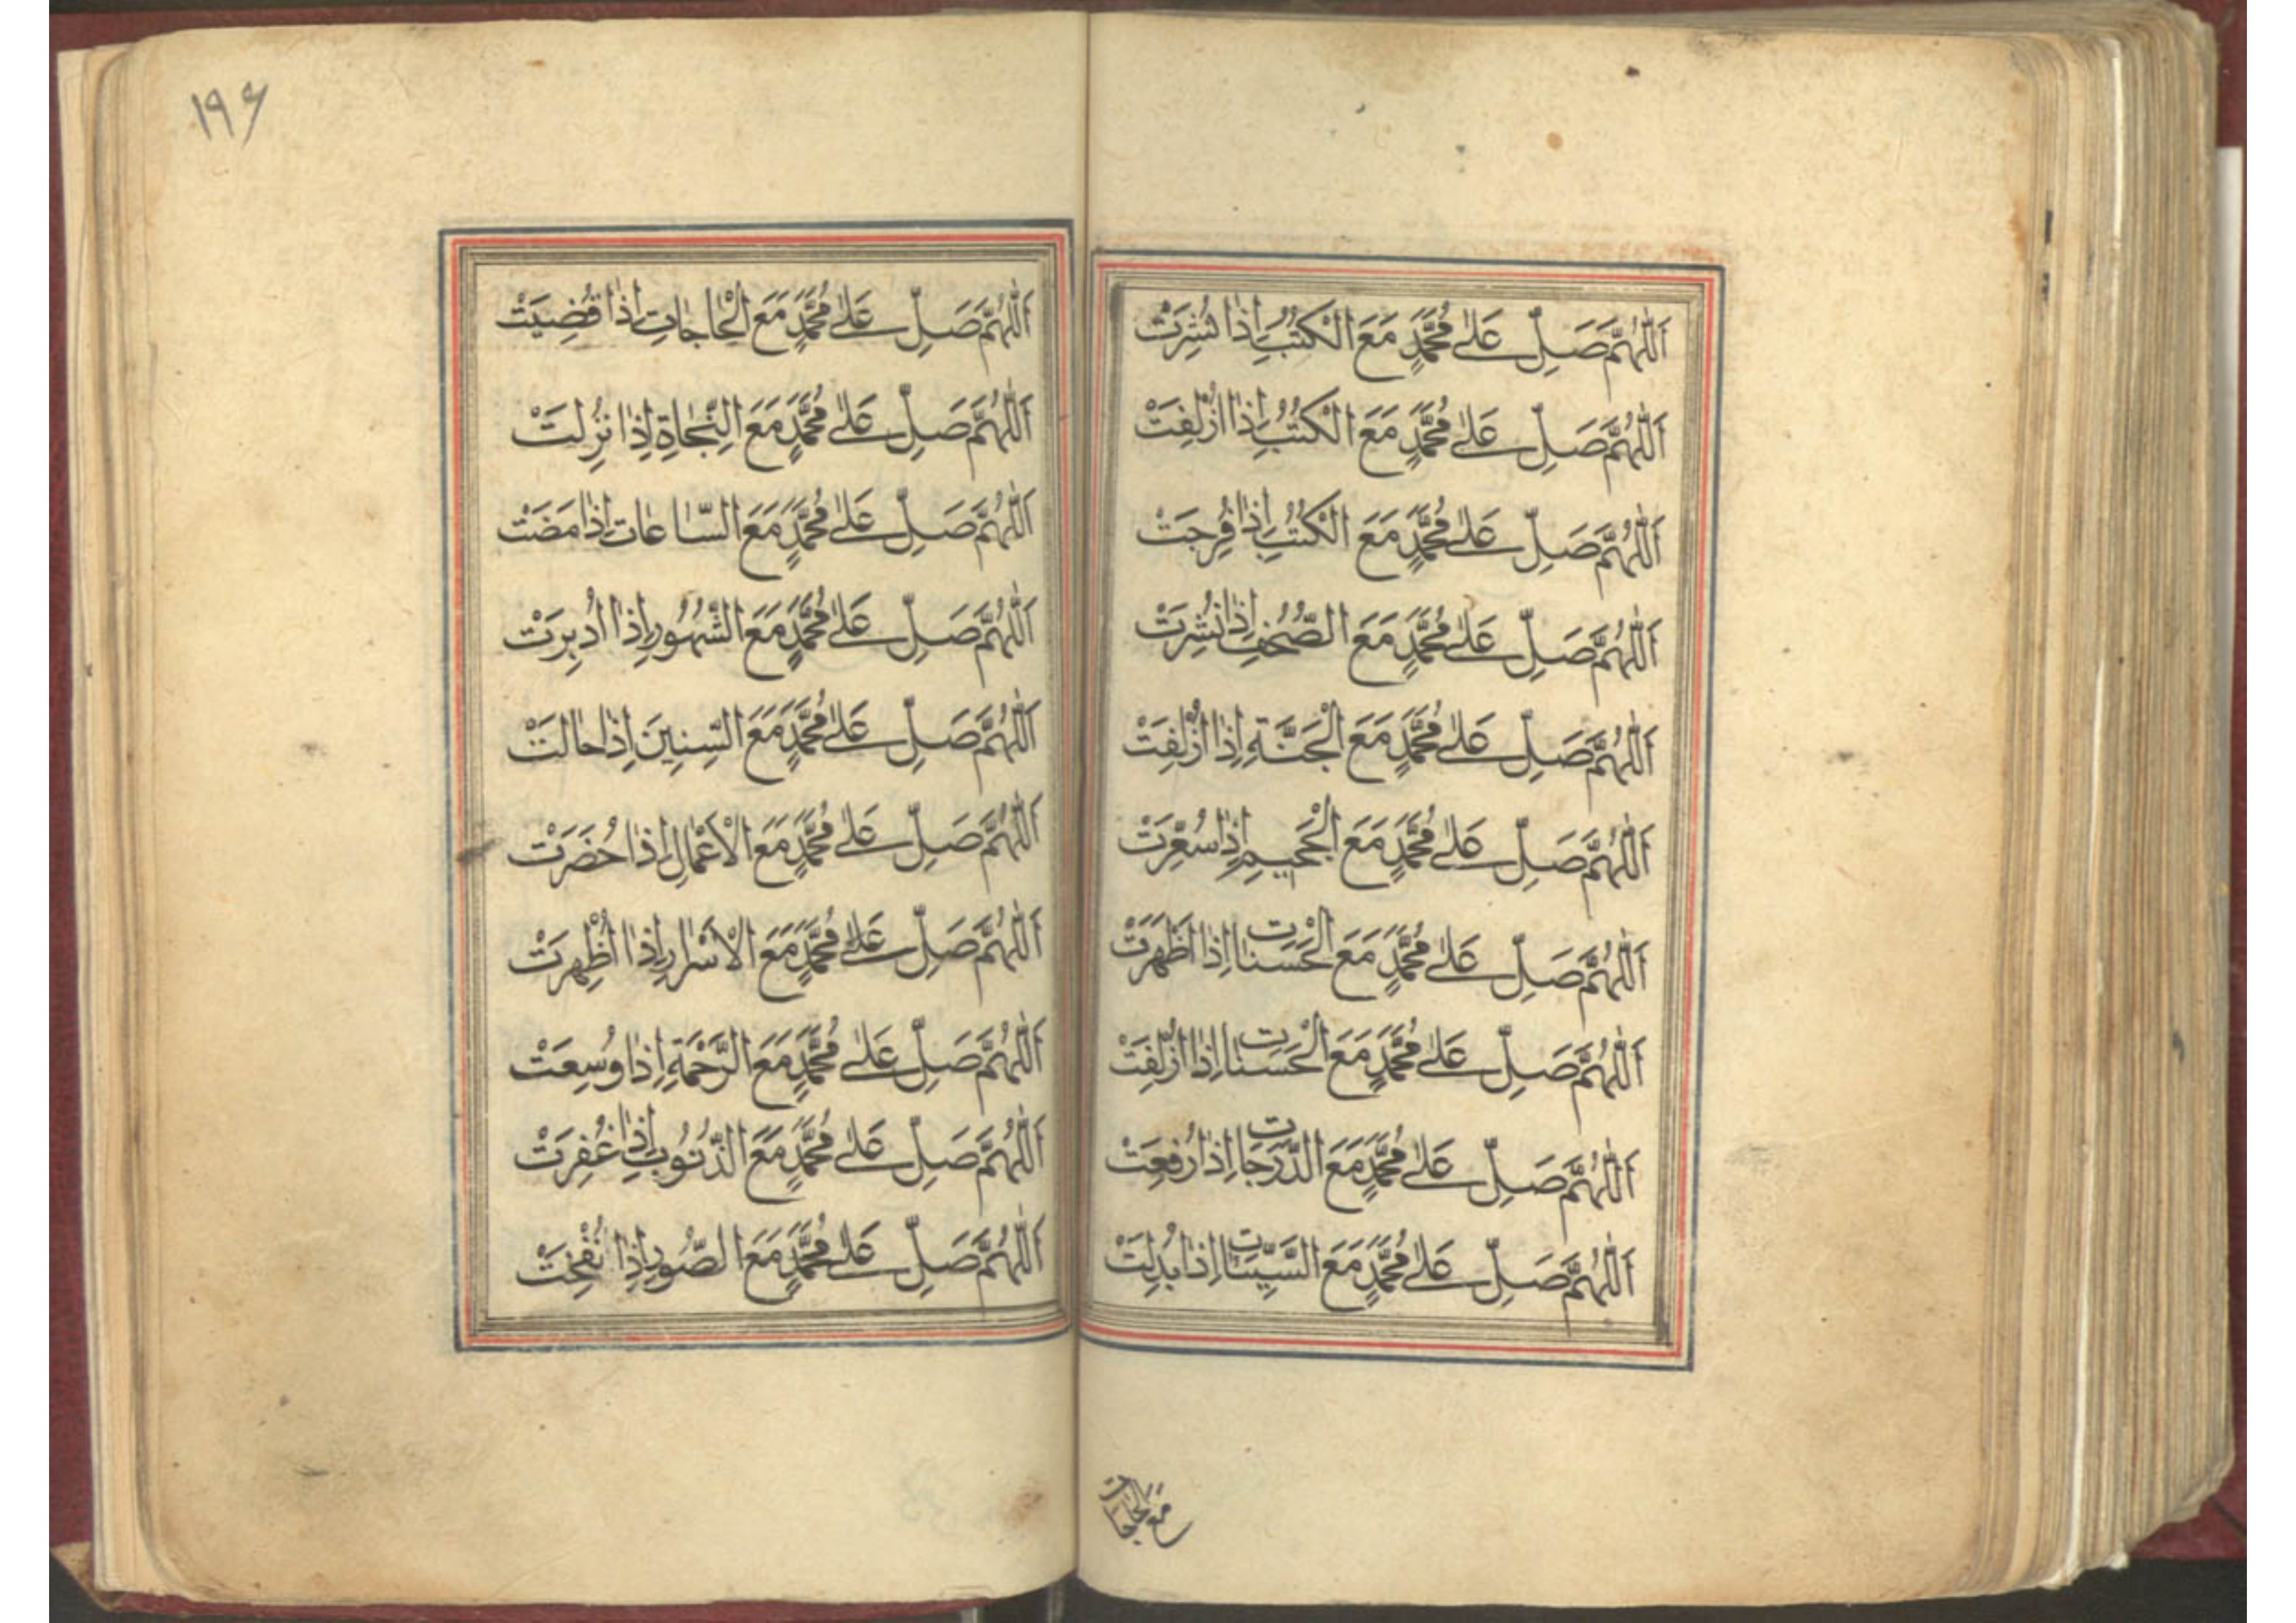 اَللّٰهُمَّ صَلِّ عَلٰى مُحَمَّدٍ مَعَ الْكُتُبِ اِذٰا نُشِرَتْ
اَللّٰهُمَّ صَلِّ عَلٰى مُحَمَّدٍ مَعَ الْكُتُبِ اِذٰا اُزْلِفَتْ
اَللّٰهُمَّ صَلِّ عَلٰى مُحَمَّدٍ مَعَ الْكُتُبِ اِذٰا فُرِجَتْ
اَللّٰهُمَّ صَلِّ عَلٰى مُحَمَّدٍ مَعَ الصُّحُفِ اِذٰا نُشِرَتْ
اَللّٰهُمَّ صَلِّ عَلٰى مُحَمَّدٍ مَعَ الْجَنَّةِ اِذٰا اُزْلِفَتْ
اَللّٰهُمَّ صَلِّ عَلٰى مُحَمَّدٍ مَعَ الْجَحيمِ اِذٰا سُعِّرَتْ
اَللّٰهُمَّ صَلِّ عَلٰى مُحَمَّدٍ مَعَ الْحَسَنٰات اِذٰا اَظْهَرَتْ
اَللّٰهُمَّ صَلِّ عَلٰى مُحَمَّدٍ مَعَ الْحَسَنٰات اِذٰا اُزْلِفَتْ
اَللّٰهُمَّ صَلِّ عَلٰى مُحَمَّدٍ مَعَ الدَّرَجٰات اِذٰا رُفِعَتْ
اَللّٰهُمَّ صَلِّ عَلٰى مُحَمَّدٍ مَعَ السَّيِّئٰات اِذٰا بُدِلَتْ
مَعَ الْحٰاجٰات
١٩۶
اَللّٰهُمَّ صَلِّ عَلٰى مُحَمَّدٍ مَعَ الْحٰاجٰاتِ اِذٰا قُضِيَتْ
اَللّٰهُمَّ صَلِّ عَلٰى مُحَمَّدٍ مَعَ النِّجٰاةِ اِذٰا نُزِلَتْ
اَللّٰهُمَّ صَلِّ عَلٰى مُحَمَّدٍ مَعَ السّٰاعٰاتِ اِذٰا مَضَتْ
اَللّٰهُمَّ صَلِّ عَلٰى مُحَمَّدٍ مَعَ الشُّهُورِ اِذٰا اُدْبِرَتْ
اَللّٰهُمَّ صَلِّ عَلٰى مُحَمَّدٍ مَعَ السِّنِينَ اِذٰا حٰالَتْ
اَللّٰهُمَّ صَلِّ عَلٰى مُحَمَّدٍ مَعَ الْاَعْمٰالِ اِذٰا حُضَرَتْ
اَللّٰهُمَّ صَلِّ عَلٰى مُحَمَّدٍ مَعَ الْاَسْرٰارِ اِذٰا اُظْهِرَتْ
اَللّٰهُمَّ صَلِّ عَلٰى مُحَمَّدٍ مَعَ الرَّحْمَةِ اِذٰا وُسِعَتْ
اَللّٰهُمَّ صَلِّ عَلٰى مُحَمَّدٍ مَعَ الذُّنُوبِ اِذٰا غُفِرَتْ
اَللّٰهُمَّ صَلِّ عَلٰى مُحَمَّدٍ مَعَ الصُّورِ اِذٰا نُفْخِتْ